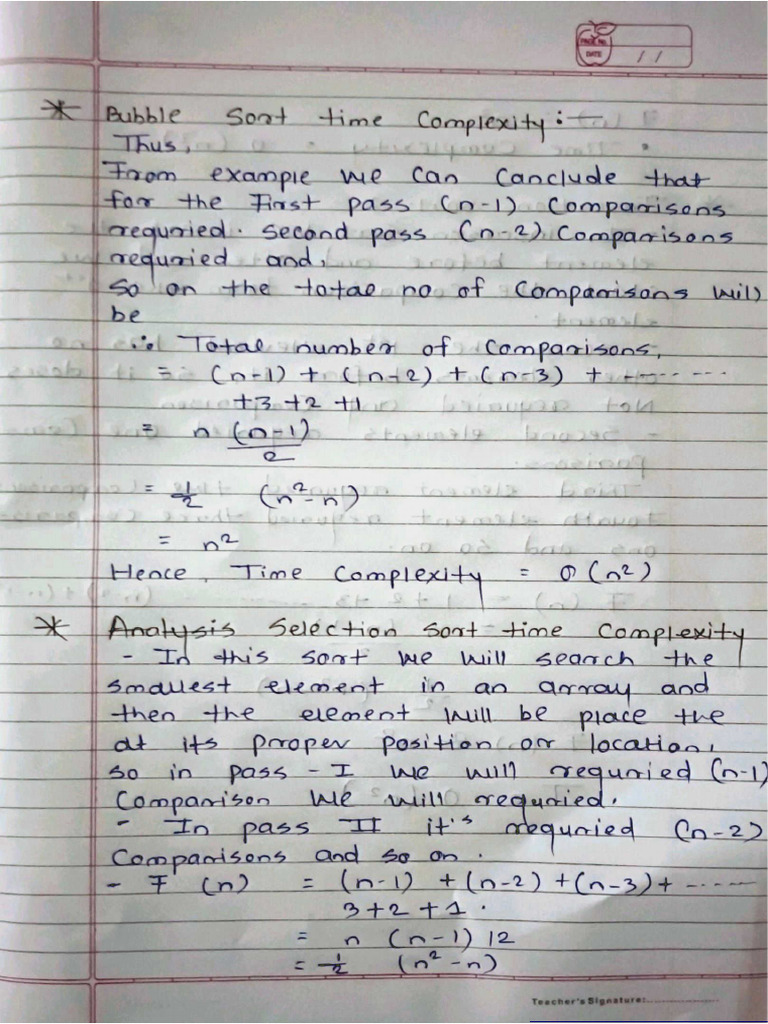 PAGE NO.
DATE / /
* Bubble Sort time Complexity:-
Thus,
From example we can canclude that
for the First pass (n-1) Comparisons
requried. Second pass (n-2) Comparisons
requried and,
So on the total no of Comparisons will
be
∴ Total number of comparisons,
= (n-1) + (n-2) + (n-3) + .......
+3 +2 +1
= n (n-1)
2
= 1/2 (n²-n)
= n²
Hence, Time Complexity = O(n²)
* Analysis Selection Sort time Complexity
- In this sort we will search the
smallest element in an array and
then the element will be place the
at its proper position or location,
so in pass - I we will requried (n-1)
Comparison we will requried.
- In pass II it's requried (n-2)
Comparisons and so on.
- F (n) = (n-1) +(n-2) +(n-3)+ ......
3+2+1.
= n (n-1) 12
= 1/2 (n²-n)
Teacher's Signature:....................